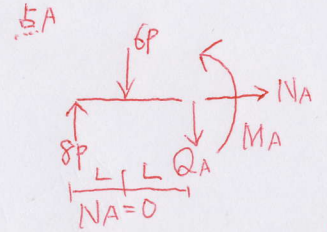 点A
6P
NA
MA
8P
QA
L L
NA=0